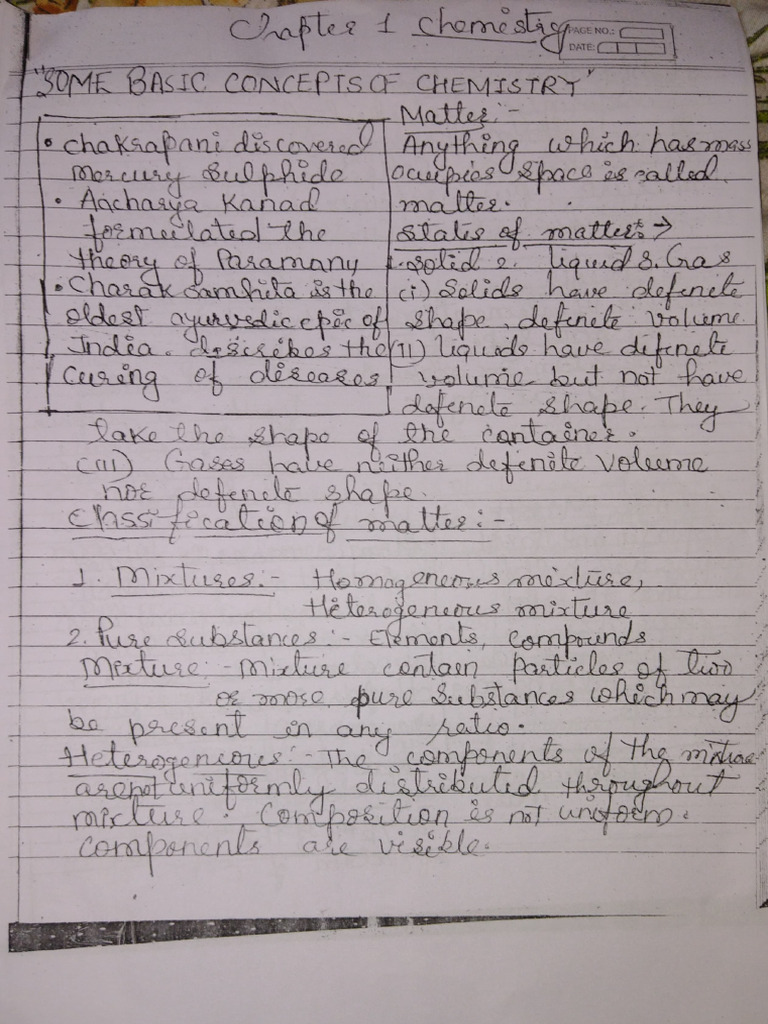 Chapter 1 Chemistry
PAGE NO.:
DATE:
"SOME BASIC CONCEPTS OF CHEMISTRY"
• Chakrapani discovered
mercury sulphide
• Aacharya Kanad
formulated the
theory of Paramanu
• Charak Samhita is the
oldest ayurvedic epic of
India. describes the
curing of diseases
Matter:-
Anything which has mass
occupies space is called
matter.
States of matter:→
1. Solid 2. liquid 3. Gas
(i) Solids have defenete
shape, defenete volume.
(ii) liquids have difenete
volume but not have
defenete shape. They
take the shape of the container.
(iii) Gases have neither defenite volume
nor defenete shape.
Classification of matter:-
1. Mixtures:- Homogeneous mixture,
Heterogeneous mixture
2. Pure Substances:- Elements, compounds
Mixture:- Mixture contain particles of two
or more pure substances which may
be present in any ratio.
Heterogeneous:- The components of the mixture
are not uniformly distributed throughout
mixture. Composition is not uniform.
components are visible.